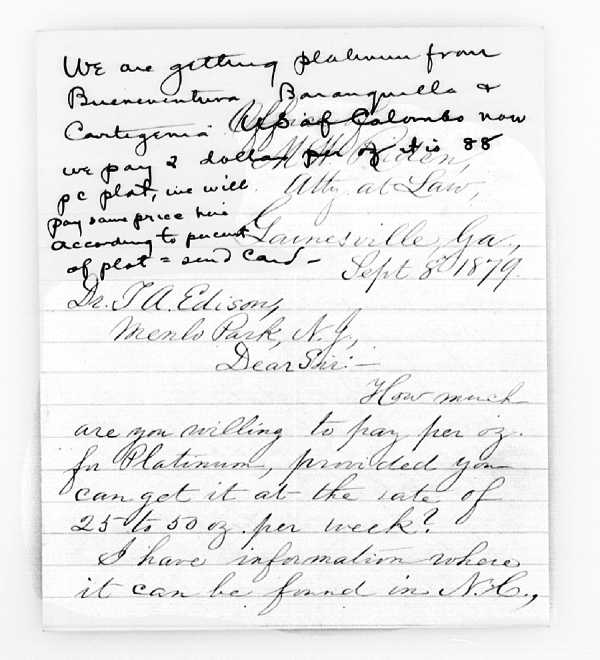 We are getting platinum from
Bueneventura Baranquilla &
Cartigenia U/S of Colombo now
we pay 2 dollars per oz it is 88
pc plat, we will
pay same price here
according to percent
of plat = send card –
Office of
M. H.
Atty at Law,
Gainesville, Ga.,
Sept 8 1879.
Dr. T A. Edison,
Menlo Park, N. J.,
Dear Sir:–
How much
are you willing to pay per oz.
for Platinum, provided you
can get it at the rate of
25 to 50 oz. per week?
I have information where
it can be found in N. C.,